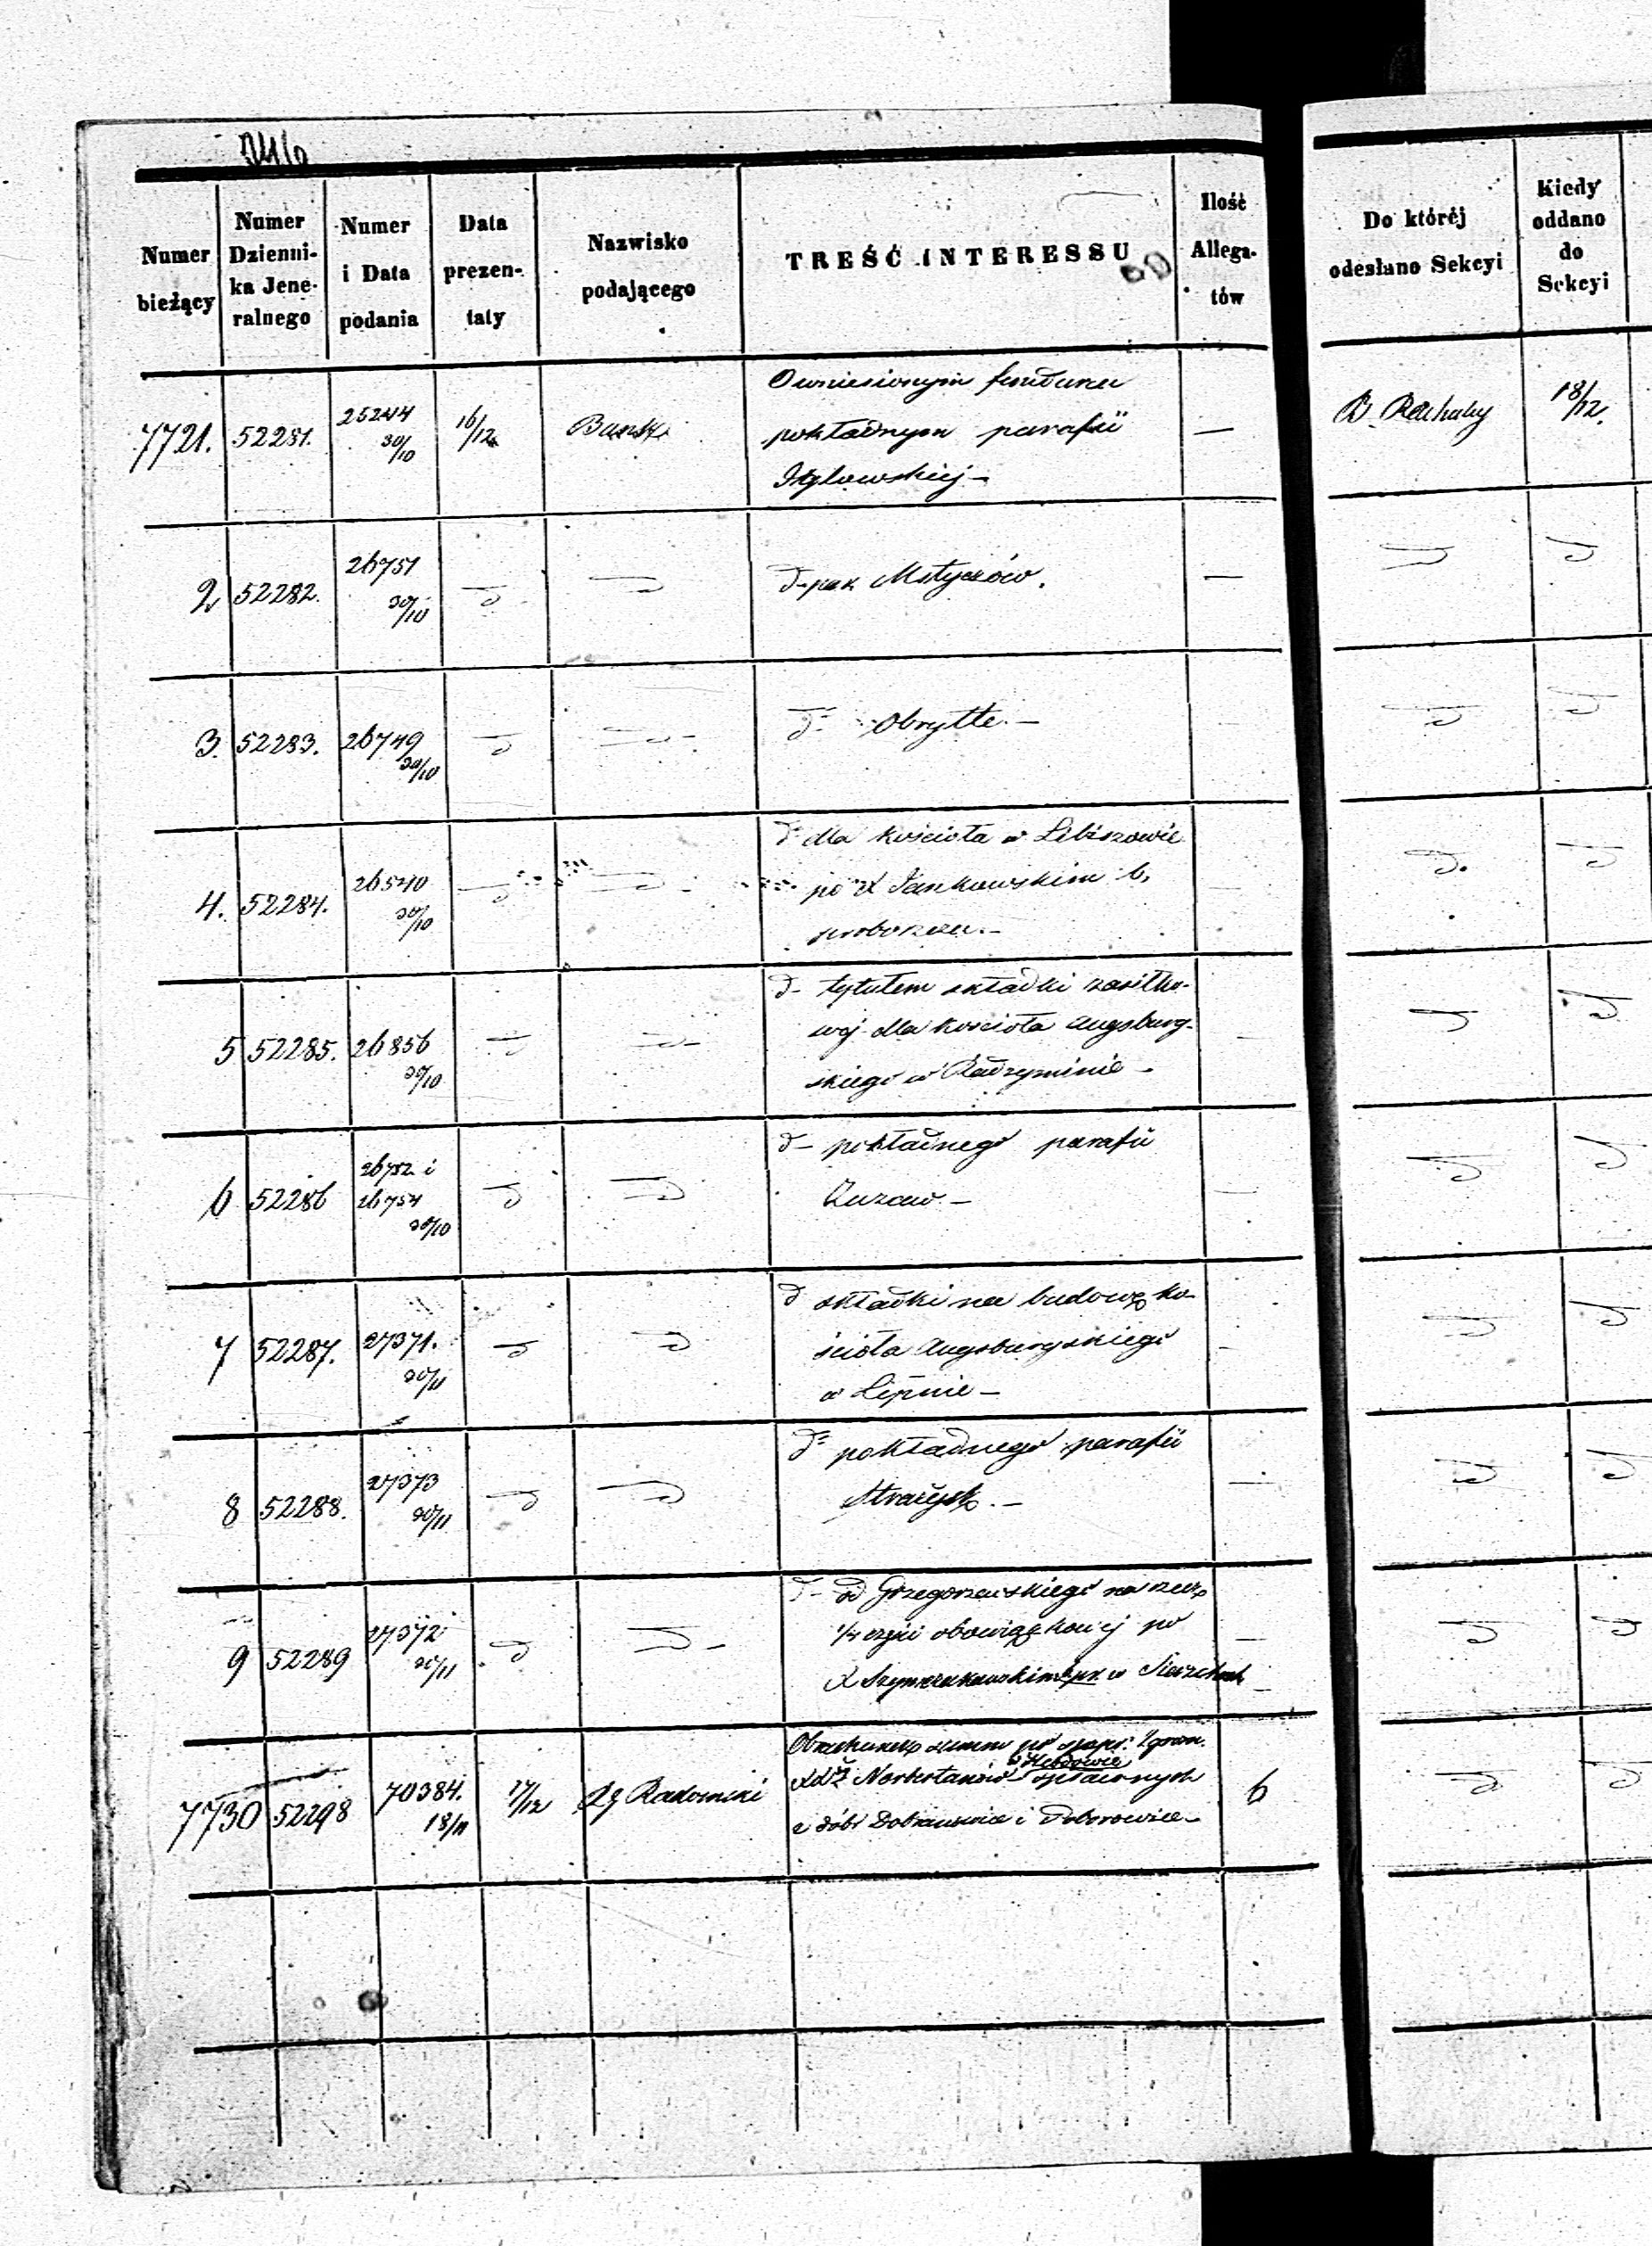 Numer bieżący
Numer Dzienni-ka Jene-ralnego
Numer i Data podania
Data prezen-taty
Nazwisko podającego
TREŚĆ INTERESSU
Ilość Allega-tów
Do któréj odesłano Sekcyi
Kiedy oddano do Sekcyi
7721. 52281. 25244 30/10 16/12 Bank
O wniesionym funduszu
pokładnym parafii
—
18/12.
2 52282. 26751 30/10 d d
d- par Mstyczów.
— d d
3. 52283. 26749 30/10 d d
d- Obrytte. —
d d
4. 52284. 26540 30/10 d d
d- dla kościoła w Libiszowie
po X Jankowskim b.
proboszczu. —
d d
5 52285. 26856 30/10 d d
d- tytułem składki zasiłko-
wej dla kościoła Augsburg-
skiego w Radzyminie —
d d
6 52286 26752 i 26754 30/10 d d
d- pokładnego parafii
d d
7 52287. 27371. 30/11 d d
d składki na budowę ko-
ścioła Augsburgskiego
w Lipnie —
d d
8 52288. 27373 30/11 d d
d- pokładnego parafii
d d
9 52289 27372 30/11 d d
d- od Grzegorzewskiego na rzecz
1/4 części obowiązkowej po
X w
d d
7730 52298 70384. 18/11 17/12 Rg Radomski
Obrachunek summ po
XX Norbertanów w Hebdowie
z dóbr i
6 d d